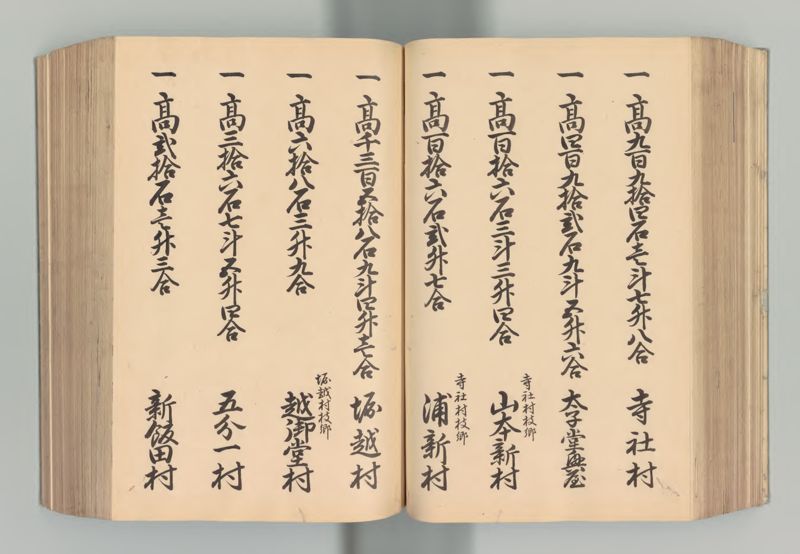 一 高九百九拾四石壱斗七升八合 寺社村
一 高四百九拾弐石九斗五升六合 太子堂興屋
一 高百拾六石三斗三升四合 寺社村枝郷 山本新村
一 高百拾六石弐升七合 寺社村枝郷 浦新村
一 高千三百五拾八石九斗四升壱合 堀越村
一 高六拾八石三升九合 堀越村枝郷 越御堂村
一 高三拾六石七斗五升四合 五分一村
一 高弐拾石壱升三合 新飯田村